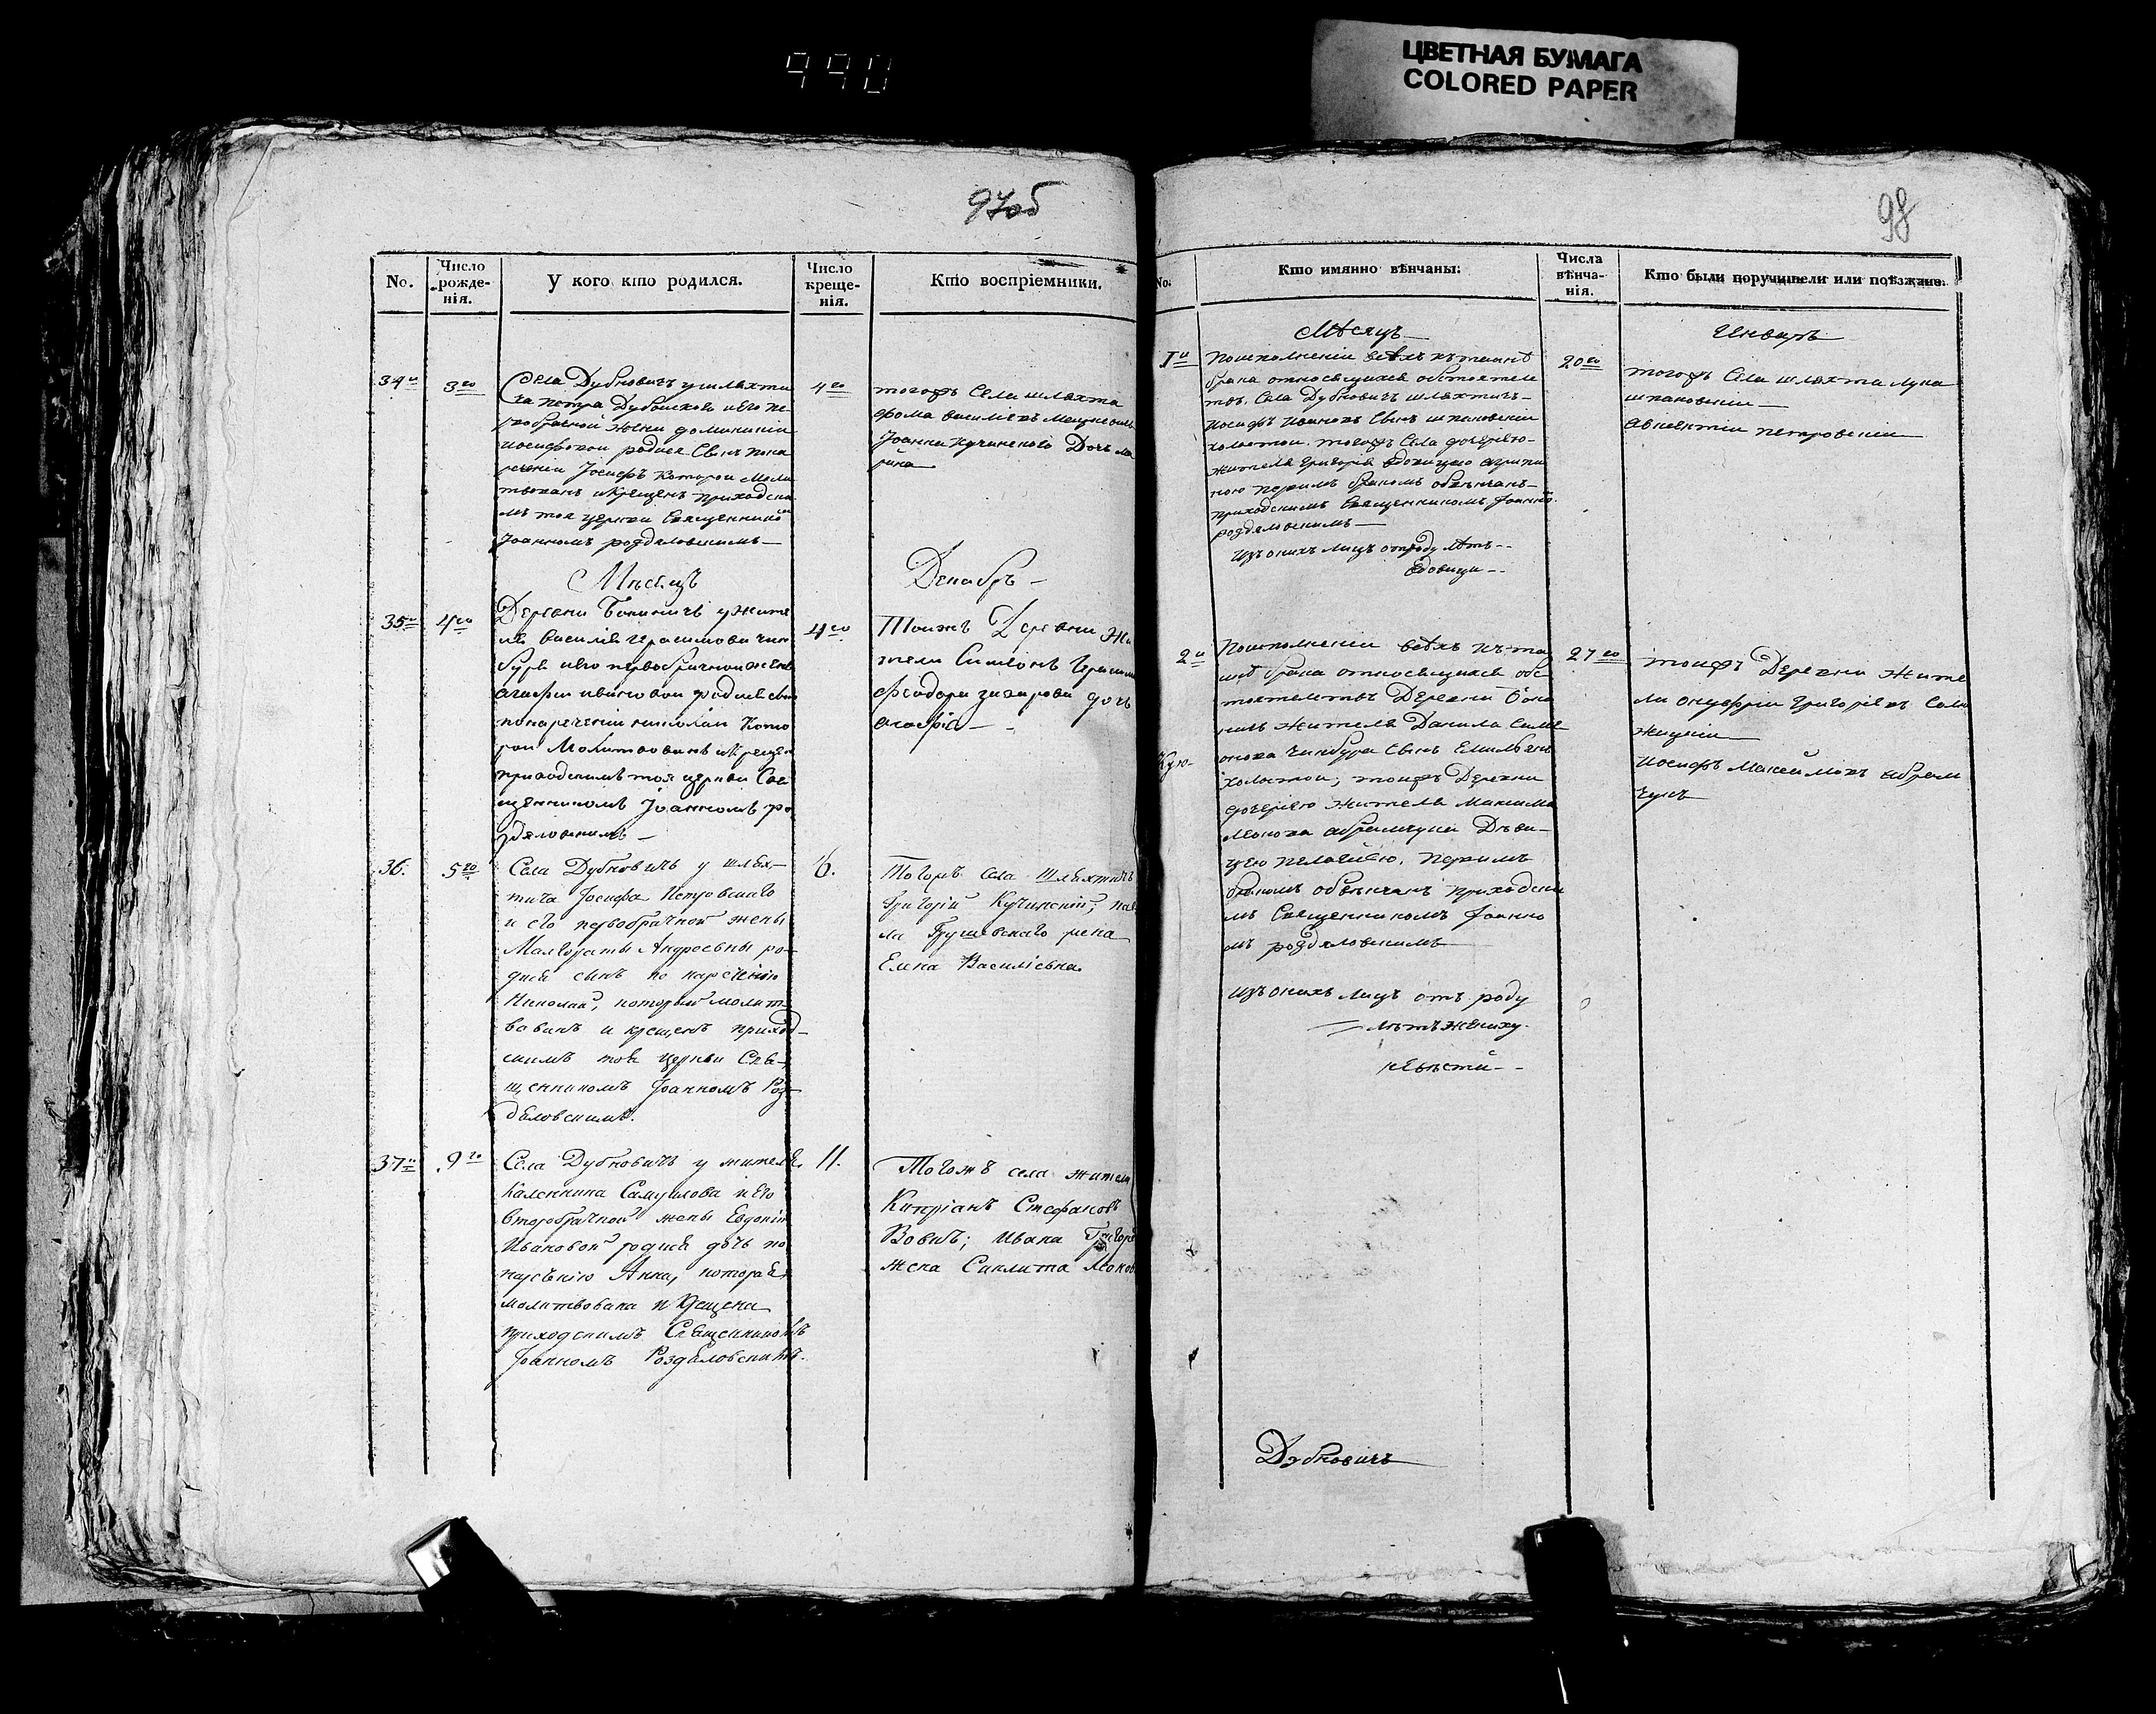 990
ЦВЕТНАЯ БУМАГА
COLORED PAPER
97об
No.
Число рожде-нія.
У кого кто родился.
Число креще-нія.
Кто воспріемники.
34й
3го
4го
Села Дубновичъ у шляхти
ча петра Дубоиского иего пе
рвобрачной жены доминикіи
иосифовои родися Сынъ пона
речении Іосифъ которои Моли
твованъ икрещенъ приходски
мъ тоя церкви Священнико
Іоанномъ роздяловскимъ
тогожъ Села шляхта
фома василіевъ
Іоанна кучинского Дочь ма
рина
Мѣсяцъ
Декабръ
35й
4го
4го
Деревни у жите
ля василія герасимова чин
бура иего первобрачнои жены
агафіи ивановои родися сынъ
понареченіи николай Кото
рои Молитвованъ икрещен
приходскимъ тоя церкви Свя
щенникомъ Іоанномъ ро
здяловскимъ
Тоижъ Деревни Жи
тели Симеонъ Герасимо
Феодора захарова дочь
агафія
36.
5го
6.
Села Дубновичъ у шлях-
тича Іосифа Петровскаго
и его первобрачной жены
Малгораты Андреевны ро-
дися сынъ по нареченію
Николай, который молит
вованъ и крещенъ приход-
скимъ тоя церкви Свя-
щенникомъ Іоанномъ Роз-
дяловскимъ.
Тогожъ села Шляхтичъ
Григорій Кучинскій; пав
ла Грушевскаго жена
Елена Василіевна
37й
9го
11.
Села Дубновичъ у жителя
Каленника Самуилова и Его
второбрачной жены Евдокіи
Ивановой родися дочь по
нареченію Анна, которая
молитвована и крещена
приходскимъ Священникомъ
Іоанномъ Роздяловскимъ.
Тогожъ села жители
Кипріанъ Стефановъ
Вовкъ; Ивана Григоре
жена Саклита Леонов
98
No.
Кто имянно вѣнчаны:
Числа вѣнча-нія.
Кто были поручители или поѣзжане.
Мѣсяцъ
Генваръ
1й
20го
Поисполненіи всѣхъ ктаинѣ
брака относящихся обстоятелс
твъ. Села Дубновичъ шляхтичъ
иосифъ ивановъ Сынъ шпановскіи
холостои. тогожъ Села дочерею
жителя григорія вдовицею агрипи
ною первимъ бракомъ обвѣнчанъ
приходскимъ Священникомъ Іоанно
роздяловскимъ
изъ онихъ лицъ отроду лѣтъ--
вдовици--
тогожъ Села шляхта лука
шпановскіи
авксентіи петровскіи
2й
27го
Поисполненіи всѣхъ къ таи
нѣ брака относящихся обс
тоятелствъ Деревни
жителя Данила Симе
онова чинбура Сынъ Емилянъ
холостои, тоижъ Деревни
дочерею жителя Максима
Леонова абрамчука Дѣви-
цею пелагіею. первимъ
бракомъ обвѣнчанъ приходски
мъ Священникомъ Іоанно
мъ роздяловскимъ
изъ онихъ лицъ отъ роду
лѣтъ жениху.
невѣсти--
тоижъ Деревни жите
ли онуфріи григоріевъ
иосифъ Максимовъ абрам
чукъ
Дубновичъ